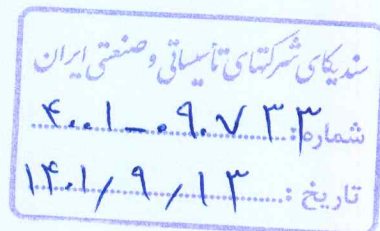 سندیکای شرکتهای تأسیساتی و صنعتی ایران
شماره: ۴۰۰۱-۰۹۰۷۳۳
تاریخ: ۱۴۰۱/۹/۱۳